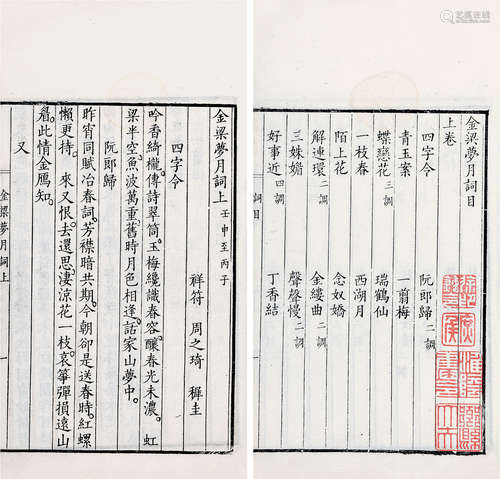 金梁夢月詞目
上卷
四字令 阮郎歸二調
青玉案 一翦梅
蝶戀花三調 瑞鶴仙
一枝春 西湖月
陌上花 念奴嬌
解連環二調 金縷曲二調
三姝媚 聲聲慢二調
好事近四調 丁香結
詞目
金梁夢月詞上 壬申至丙子
祥符 周之琦 穉圭
四字令
吟香綺櫳。傳詩翠筒。玉梅纔識春容。釀春光未濃。 虹
梁半空。魚波萬重。舊時月色相逢。話家山夢中。
阮郎歸
昨宵同賦冶春詞。芳襟暗共期。今朝卻是送春時。紅螺
懶更持。 來又恨。去還思。淒涼花一枝。哀箏彈損遠山
眉。此情金鴈知。
又
金梁夢月詞上 一